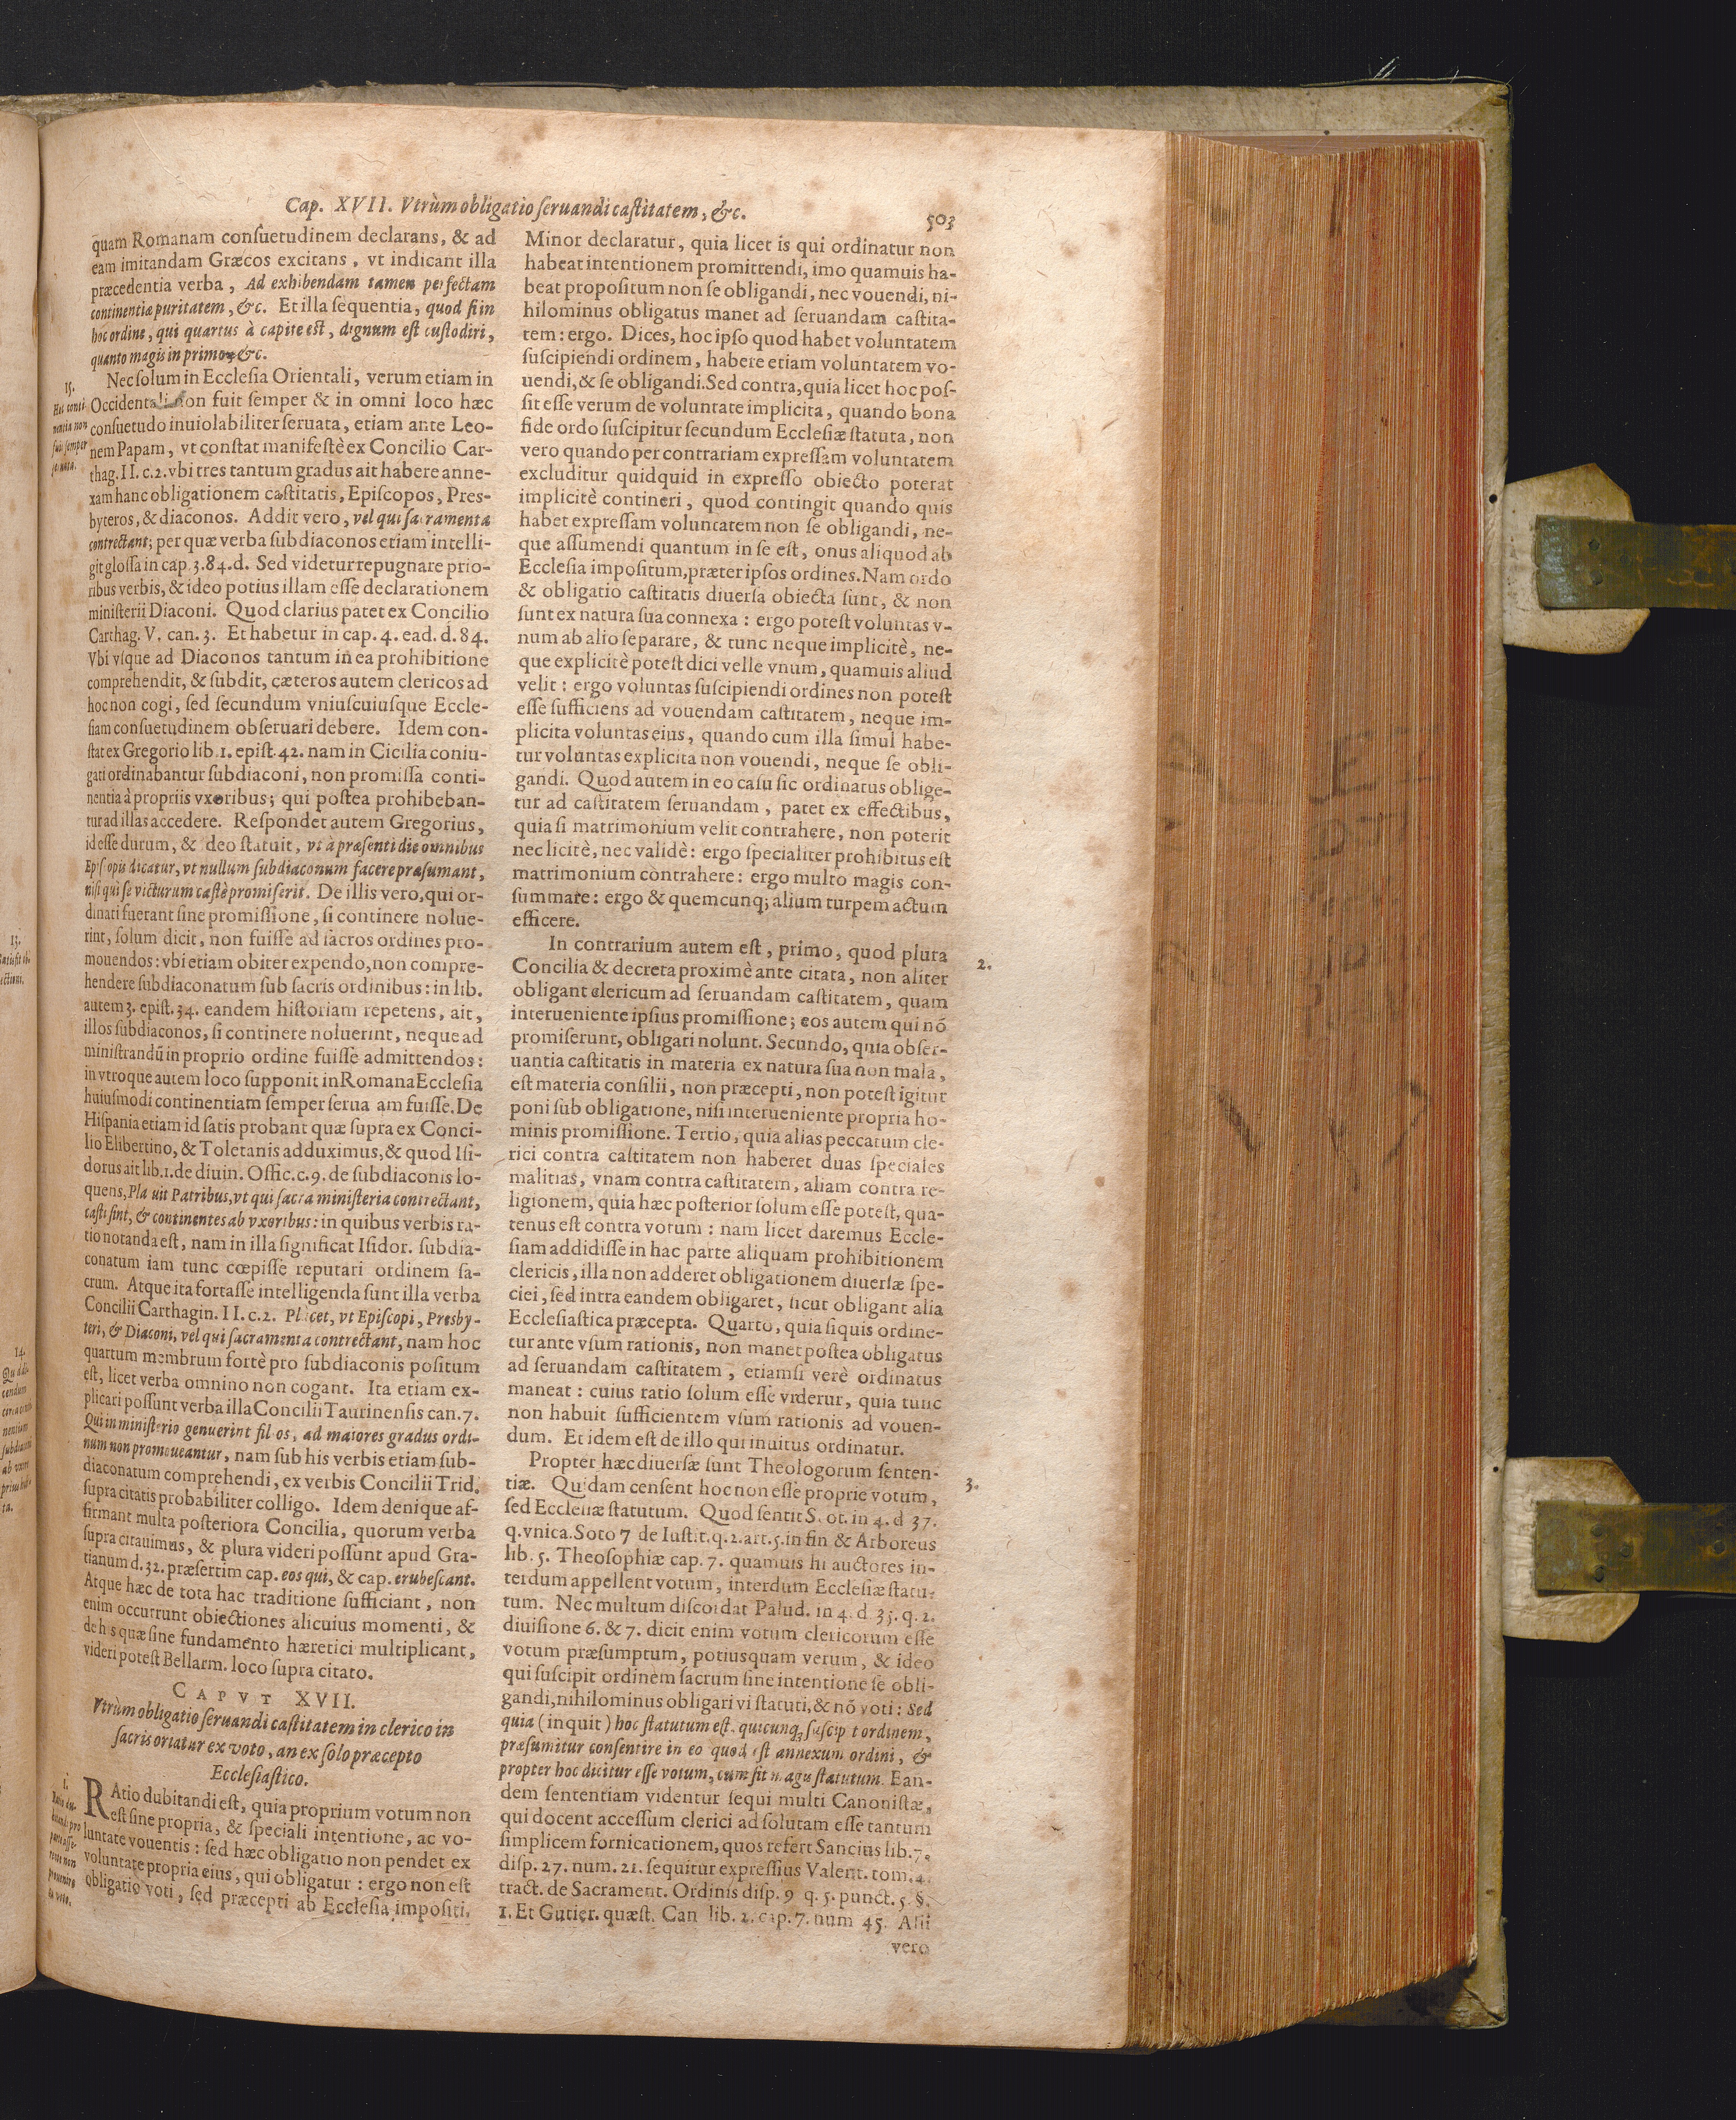 Cap. XVII. Vtrùm obligatio seruandi castitatem, &c.
503
quam Romanam consuetudinem declarans, & ad
eam imitandam Græcos excitans, vt indicant illa
præcedentia verba, Ad exhibendam tamen perfectam
continentiæ puritatem, &c. Et illa sequentia, quod si in
hoc ordine, qui quartus à capite est, dignum est custodiri,
quanto magis in primo, &c.
15.
Hæc conti-
nentia non
fuit semper
seruata.
Nec solum in Ecclesia Orientali, verum etiam in
Occidentali non fuit semper & in omni loco hæc
consuetudo inuiolabiliter seruata, etiam ante Leo-
nem Papam, vt constat manifestè ex Concilio Car-
thag. II. c.2. vbi tres tantum gradus ait habere anne-
xam hanc obligationem castitatis, Episcopos, Pres-
byteros, & diaconos. Addit vero, vel qui sacramenta
contrectant; per quæ verba subdiaconos etiam intelli-
git glossa in cap. 3. 84. d. Sed videtur repugnare prio-
ribus verbis, & ideo potius illam esse declarationem
ministerii Diaconi. Quod clarius patet ex Concilio
Carthag. V. can. 3. Et habetur in cap. 4. ead. d. 84.
Vbi vsque ad Diaconos tantum in ea prohibitione
comprehendit, & subdit, cæteros autem clericos ad
hoc non cogi, sed secundum vniuscuiusque Eccle-
siam consuetudinem obseruari debere. Idem con-
stat ex Gregorio lib. 1. epist. 42. nam in Cicilia coniu-
gati ordinabantur subdiaconi, non promissa conti-
nentia à propriis vxoribus; qui postea prohibeban-
tur ad illas accedere. Respondet autem Gregorius,
id esse durum, & ideo statuit, vt à præsenti die omnibus
Episcopis dicatur, vt nullum subdiaconum facere præsumant,
nisi qui se victurum castè promiserit. De illis vero, qui or-
dinati fuerant sine promissione, si continere nolue-
rint, solum dicit, non fuisse ad sacros ordines pro-
mouendos: vbi etiam obiter expendo, non compre-
hendere subdiaconatum sub sacris ordinibus: in lib.
autem 3. epist. 34. eandem historiam repetens, ait,
illos subdiaconos, si continere noluerint, neque ad
ministrandũ in proprio ordine fuisse admittendos:
in vtroque autem loco supponit in Romana Ecclesia
huiusmodi continentiam semper serua am fuisse. De
Hispania etiam id satis probant quæ supra ex Conci-
lio Elibertino, & Toletanis adduximus, & quod Isi-
dorus ait lib. 1. de diuin. Offic. c. 9. de subdiaconis lo-
quens, Pla uit Patribus, vt qui sacra ministeria contrectant,
casti sint, & continentes ab vxoribus: in quibus verbis ra-
tio notanda est, nam in illa significat Isidor. subdia-
conatum iam tunc cœpisse reputari ordinem sa-
crum. Atque ita fortasse intelligenda sunt illa verba
Concilii Carthagin. II. c.2. Placet, vt Episcopi, Presby-
teri, & Diaconi, vel qui sacramenta contrectant, nam hoc
quartum membrum fortè pro subdiaconis positum
est, licet verba omnino non cogant. Ita etiam ex-
plicari possunt verba illa Concilii Taurinensis can. 7.
Qui in ministerio genuerint filios, ad maiores gradus ordi-
num non promoueantur, nam sub his verbis etiam sub-
diaconatum comprehendi, ex verbis Concilii Trid.
supra citatis probabiliter colligo. Idem denique af-
firmant multa posteriora Concilia, quorum verba
supra citauimus, & plura videri possunt apud Gra-
tianum d. 32. præsertim cap. eos qui, & cap. erubescant.
Atque hæc de tota hac traditione sufficiant, non
enim occurrunt obiectiones alicuius momenti, &
de his quæ sine fundamento hæretici multiplicant,
videri potest Bellarm. loco supra citato.
CAPVT XVII.
Vtrùm obligatio seruandi castitatem in clerico in
sacris oriatur ex voto, an ex solo præcepto
Ecclesiastico.
1.
RAtio dubitandi est, quia proprium votum non
est sine propria, & speciali intentione, ac vo-
luntate vouentis: sed hæc obligatio non pendet ex
voluntate propria eius, qui obligatur: ergo non est
obligatio voti, sed præcepti ab Ecclesia impositi.
Minor declaratur, quia licet is qui ordinatur non
habeat intentionem promittendi, imo quamuis ha-
beat propositum non se obligandi, nec vouendi, ni-
hilominus obligatus manet ad seruandam castita-
tem: ergo. Dices, hoc ipso quod habet voluntatem
suscipiendi ordinem, habere etiam voluntatem vo-
uendi, & se obligandi. Sed contra, quia licet hoc pos-
sit esse verum de voluntate implicita, quando bona
fide ordo suscipitur secundum Ecclesiæ statuta, non
vero quando per contrariam expressam voluntatem
excluditur quidquid in expresso obiecto poterat
implicitè contineri, quod contingit quando quis
habet expressam voluntatem non se obligandi, ne-
que assumendi quantum in se est, onus aliquod ab
Ecclesia impositum, præter ipsos ordines. Nam ordo
& obligatio castitatis diuersa obiecta sunt, & non
sunt ex natura sua connexa: ergo potest voluntas v-
num ab alio separare, & tunc neque implicitè, ne-
que explicitè potest dici velle vnum, quamuis aliud
velit: ergo voluntas suscipiendi ordines non potest
esse sufficiens ad vouendam castitatem, neque im-
plicita voluntas eius, quando cum illa simul habe-
tur voluntas explicita non vouendi, neque se obli-
gandi. Quod autem in eo casu sic ordinatus oblige-
tur ad castitatem seruandam, patet ex effectibus,
quia si matrimonium velit contrahere, non poterit
nec licitè, nec validè: ergo specialiter prohibitus est
matrimonium còntrahere: ergo multo magis con-
summare: ergo & quemcunq; alium turpem actum
efficere.
2.
In contrarium autem est, primo, quod plura
Concilia & decreta proximè ante citata, non aliter
obligant clericum ad seruandam castitatem, quam
interueniente ipsius promissione; eos autem qui nõ
promiserunt, obligati nolunt. Secundo, quia obser-
uantia castitatis in materia ex natura sua non mala,
est materia consilii, non præcepti, non potest igitur
poni sub obligatione, nisi interueniente propria ho-
minis promissione. Tertio, quia alias peccatum cle-
rici contra castitatem non haberet duas speciales
malitias, vnam contra castitatem, aliam contra re-
ligionem, quia hæc posterior solum esse potest, qua-
tenus est contra votum: nam licet daremus Eccle-
siam addidisse in hac parte aliquam prohibitionem
clericis, illa non adderet obligationem diuersæ spe-
ciei, sed intra eandem obligaret, sicut obligant alia
Ecclesiastica præcepta. Quarto, quia si quis ordine-
tur ante vsum rationis, non manet postea obligatus
ad seruandam castitatem, etiamsi verè ordinatus
maneat: cuius ratio solum esse videtur, quia tunc
non habuit sufficientem vsum rationis ad vouen-
dum. Et idem est de illo qui inuitus ordinatur.
3.
Propter hæc diuersæ sunt Theologorum senten-
tiæ. Quidam censent hoc non esse proprie votum,
sed Ecclesiæ statutum. Quod sentit Scot. in 4. d 37.
q. vnica. Soto 7 de Iustit. q. 2. art. 5. in fin & Arboreus
lib. 5. Theosophiæ cap. 7. quamuis hi auctores in-
terdum appellent votum, interdum Ecclesiæ statu-
tum. Nec multum discordat Palud. in 4. d. 35. q. 2.
diuisione 6. & 7. dicit enim votum clericorum esse
votum præsumptum, potiusquam verum, & ideo
qui suscipit ordinem sacrum sine intentione se obli-
gandi, nihilominus obligari vi statuti, & nõ voti: Sed
quia (inquit) hoc statutum est, quicunq; suscip t ordinem,
præsumitur consentire in eo quod est annexum ordini, &
propter hoc dicitur esse votum, cum sit magis statutum. Ean-
dem sententiam videntur sequi multi Canonistæ,
qui docent accessum clerici ad solutam esse tantum
simplicem fornicationem, quos refert Sancius lib. 7.
disp. 27. num. 21. sequitur expressius Valent. tom. 4.
tract. de Sacrament. Ordinis disp. 9 q. 5. punct. 5. §.
1. Et Gutier. quæst. Can lib. 2. cap. 7. num 45. Alii
vero